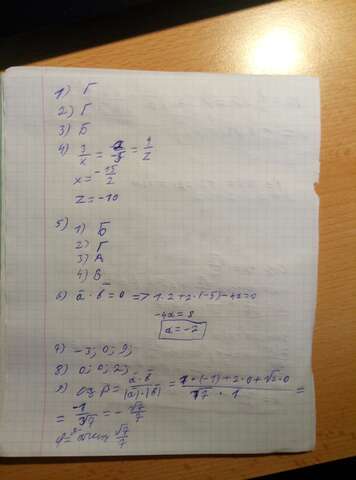 1) Г
2) Г
3) Б
4) 3/x = /-5 = 1/z
x = -15/2
z = -10
5) 1) Б
2) Г
3) А
4) В
6) a̅ · b̅ = 0 => 1·2+2·(-5)-4a=0
-4a = 8
a = -2
7) -3; 0; 9;
8) 0; 0; 2;
9) cos β = a̅·b̅/|a̅|·|b̅| = 1·(-1)+2·0+√2·0/√7 · 1 =
= -1/√7 = -√7/7
√7/7